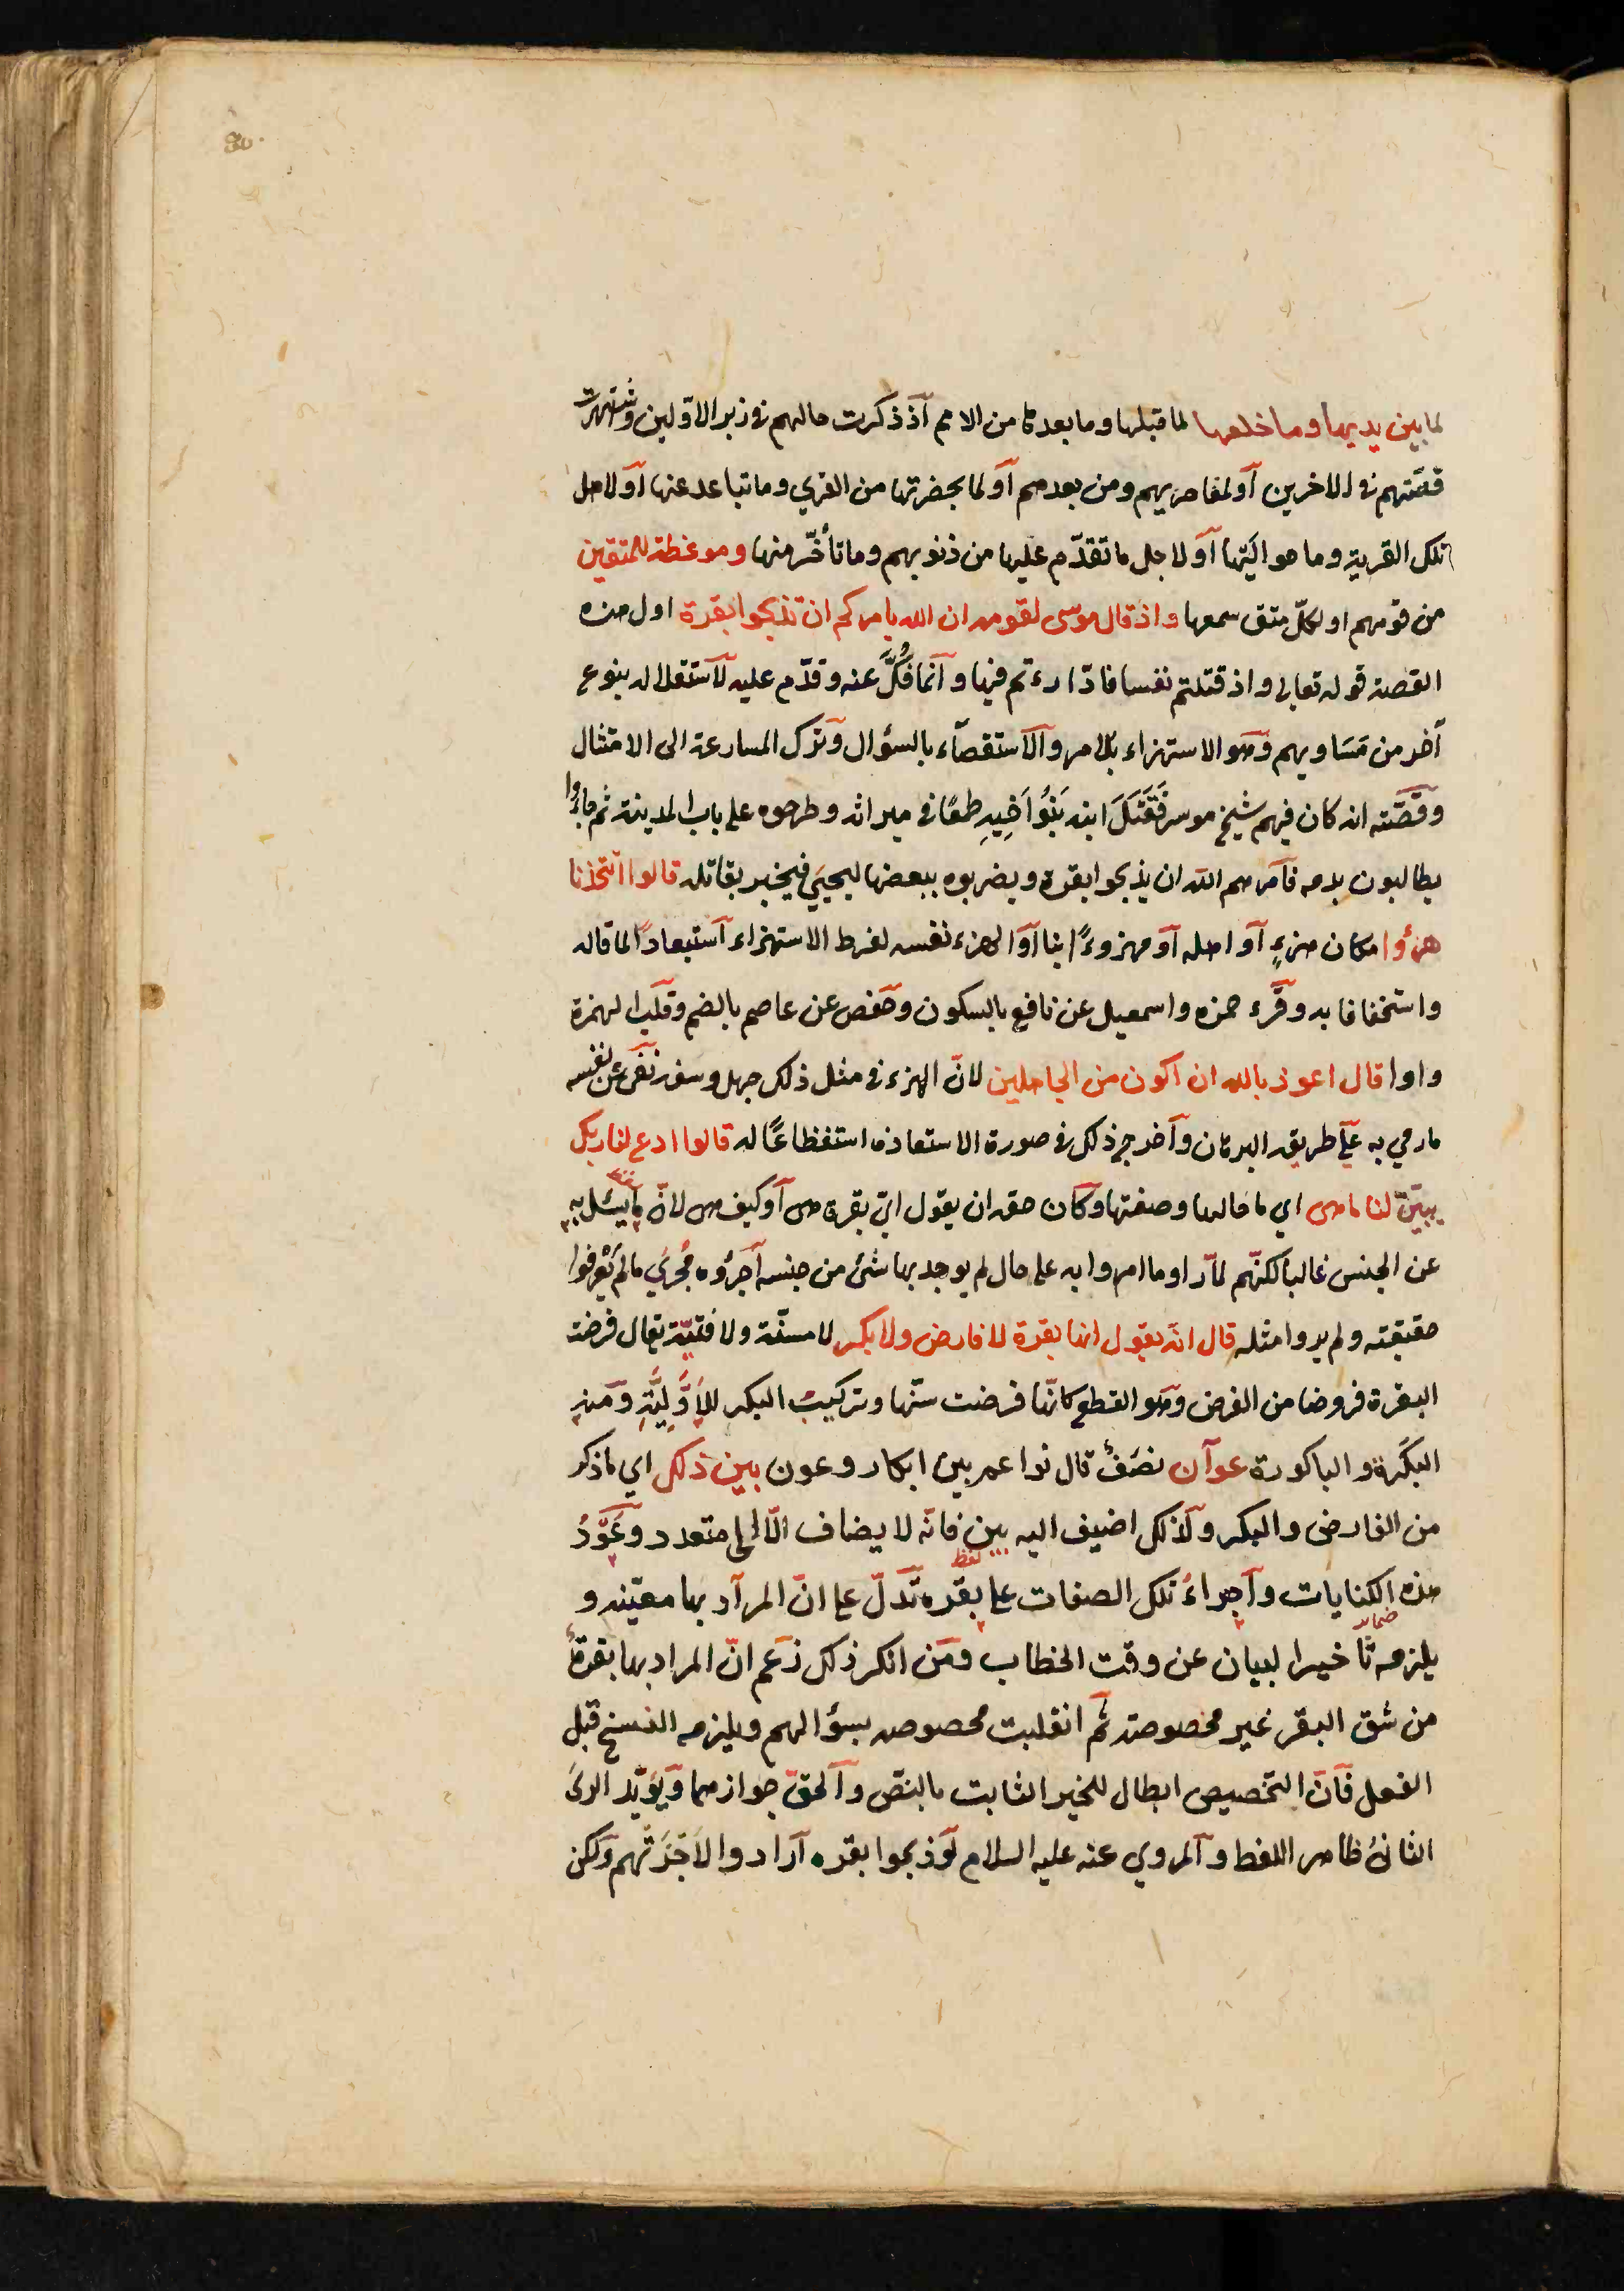 لما بين يديها وما خلفها لما قبلها وما بعدها من الامم آذ ذكرت حالهم فى زبر الاوّلين وشتهرت
قصّتهم فى الاخرين آو لمعاصريهم ومن بعدهم آو لما بحضرتها من القري وما تباعد عنها آو لاهل
تلك القرية وما حواليَها آو لاجل ما تقدّم عليها من ذنوبهم وما تأخّر منها وموعظة للمتقين
من قومهم او لكلّ متق سمعها واذ قال موسى لقومه ان الله يامركم ان تذبحوا بقرة اول هذه
القصة قوله تعالى واذ قتلتم نفسا فادّارءتم فيها وآنما فُكَّ عنه وقدّم عليه لآستقلاله بنوع
آخر من مَسَاويهم وَهو الاستهزاء بالامر والآستقصآء بالسؤال وترك المسارعة الى الامتثال
وقَصّته انه كان فيهم شيخ موسر فَقَتَلَ ابنه بَنُوا اَخِيهِ طمعًا فى ميراثه وطرحوه على باب المدينة ثم جاؤا
يطالبون بدمه فآمرهم الله ان يذبحوا بقرة ويضربوه ببعضها ليحيَي فيخبر بقاتله قالوا اتتّخذنا
هزؤا مكان هزءٍ آو اهله آو مهزوءًا بنا آو الهزء نفسه لفرط الاستهزاء آستبعادًا لما قاله
واستخفافا به وقرّء حمزه واسمعيل عن نافع بالسكون وحَفص عن عاصم بالضم وقلَب الهمزة
واوا قال اعوذ بالله ان اكون من الجاهلين لانّ الهزء فى مثل ذلك جهل وسفه نَفَى عن نفسه
ما رمي به عَلَى طريق البرهان وآخرج ذلك فى صورة الاستعاذه استفظاعًا له قالوا ادع لنا ربك
يبيّن لنا ما هى اي ما حالها وصفتها وكآن حقه ان يقول ايّ بقرة هى آو كيف هى لانّ ما يسئل به
عن الجنس غالبا لكنّهم لمّا راوا ما امروا به على حال لم يوجد بها شئ من جنسه آجرَوُه مُجرَي ما لم يَعْرفوا
حقيقته ولم يروا مثله قال انّه يقول انها بقرة لا فارض ولا بكر لا مسنّة ولا فتيّة يقال فرضت
البقرة فروضا من الفرض وَهو القطع كانّها فرضت سنّها وتركيب البكر للاَوَّلِيَّةِ ومنه
البكَرة والباكورة عوآن نصَفٌ قال نواعم بين ابكار وعون بين ذلك اي ما ذكر
من الفارض والبكر ولذلك اضيف اليه بين فانّه لا يضاف الّا الى متعدد وعَوْدُ
هذه الكنايات وآجراءُ تلك الصفات على بقره تَدلّ على انّ المرآد بها معيّنه و
يلزمه تاخير البيان عن وقت الخطاب ومَن انكر ذلك زعَم انّ المراد بها بقرةٌ
من شق البقر غير مخصوصة ثم انقلبت مخصوصه بسؤالهم ويلزمه النسخ قبل
الفعل فآنّ التخصيص ابطال للخير الثابت بالنصّ وآلحقّ جوازهما وَيؤيّد الرئ
الثانى ظاهر اللفظ وآلمروي عنه عليه السلام لَو ذبحوا بقره آرادوا لاَجْزَتْهم ولكن